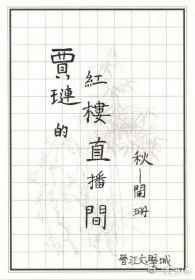 賈璉的
紅樓直播間
秋一閑珊
晉江文學城